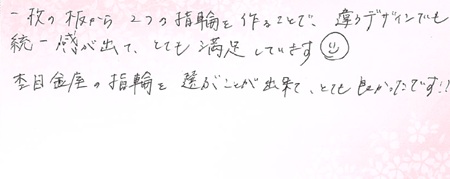 一枚の板から2つの指輪を作ることで、違うデザインでも
統一感が出て、とても満足しています☺
杢目金屋の指輪を選ぶことが出来て、とても良かったです!!